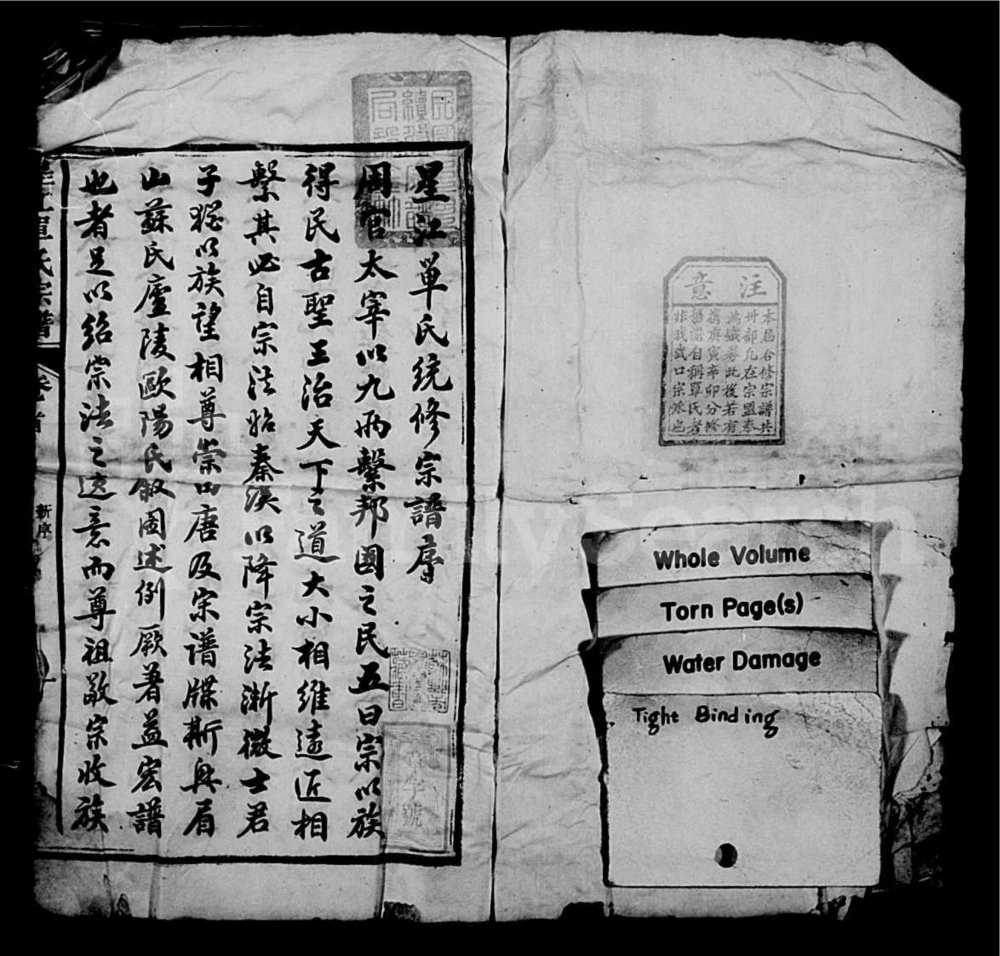 注意
本屆合修宗譜共
卅部凡在宗盟奉
為鴻寶此後若有
舊庚寅辛卯分修
譜謂自稱單氏者
非我武口宗派也
星江單氏統修宗譜序
周官太宰以九兩繫邦國之民五曰宗以族
得民古聖王治天下之道大小相維遠近相
繫其必自宗法始秦漢以降宗法漸微士君
子猶以族望相尊崇由唐及宗譜牒斯興眉
山蘇氏廬陵歐陽氏敘圖述例厥著益宏譜
也者足以紹宗法之遺意而尊祖敬宗收族
星江單氏宗譜
卷首
新序
號
FamilySearch
Whole Volume
Torn Page(s)
Water Damage
Tight Binding